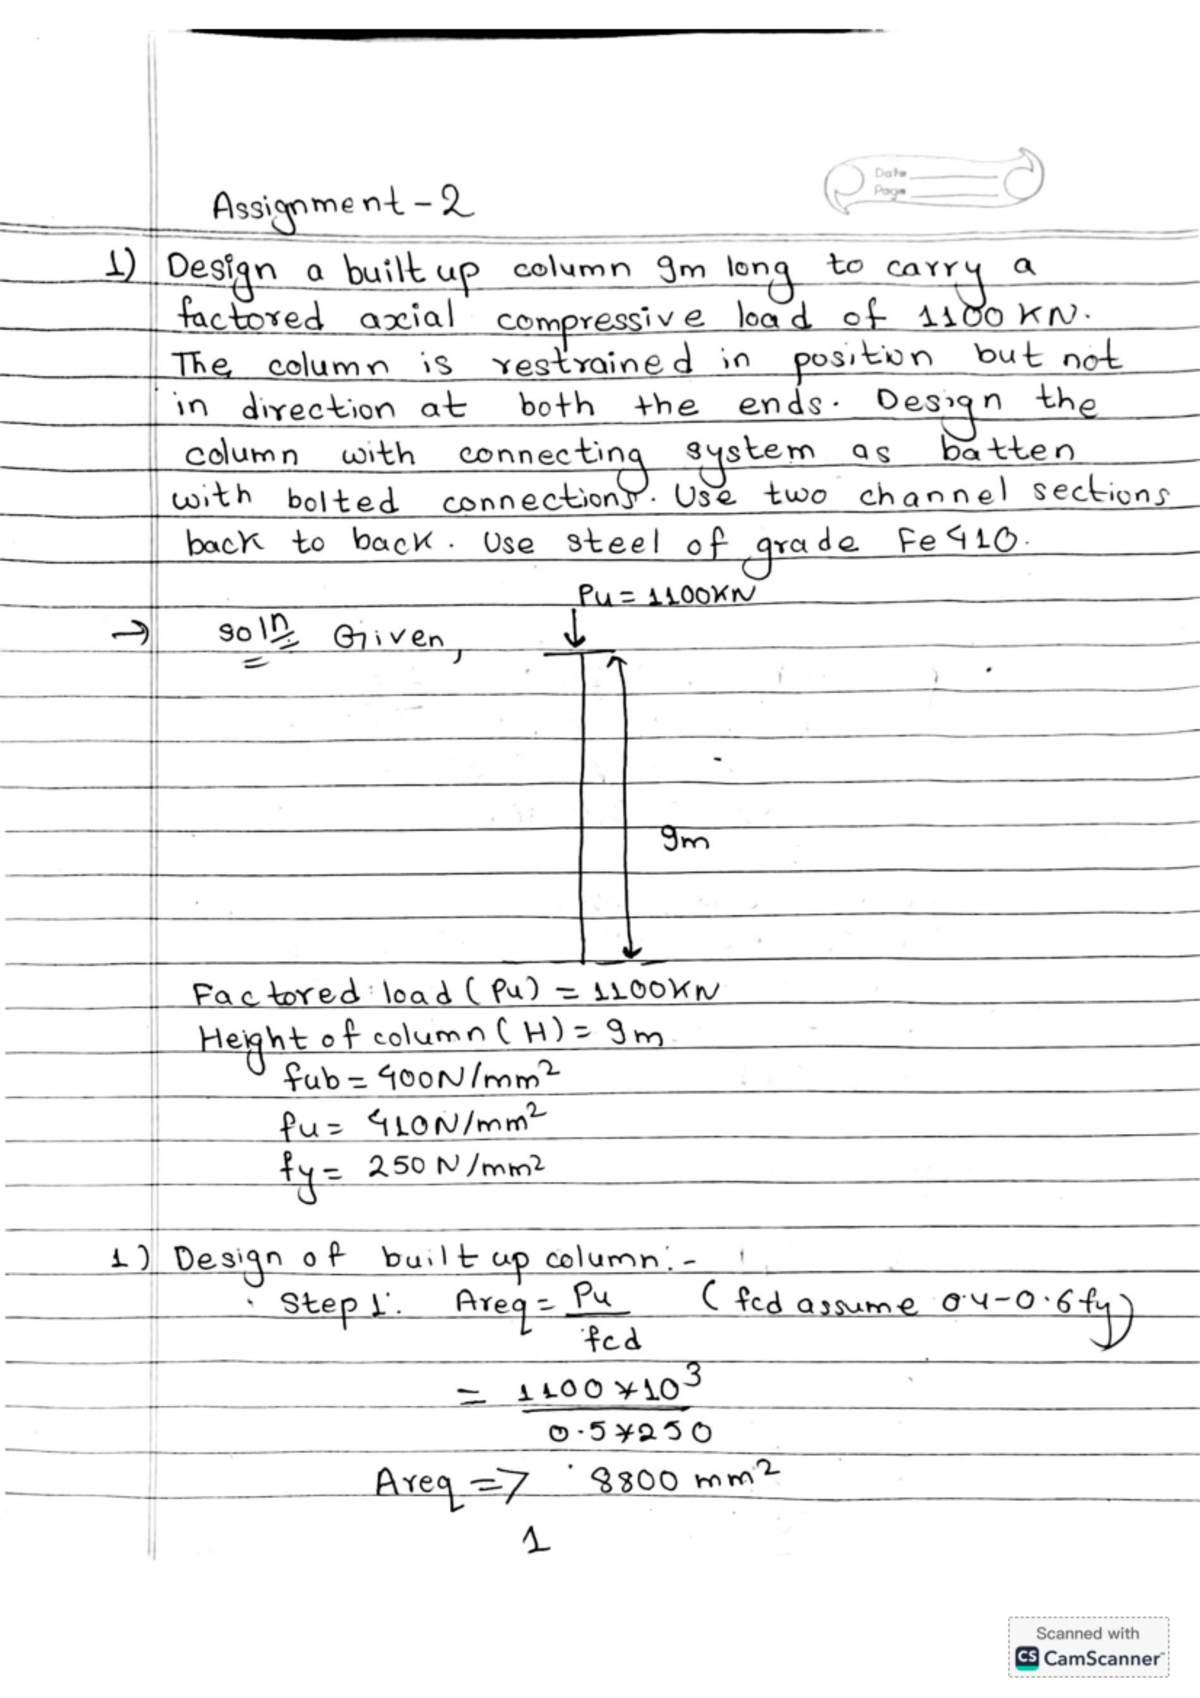 Date
Page
Assignment - 2
1) Design a built up column 9m long to carry a
factored axial compressive load of 1100 KN.
The column is restrained in position but not
in direction at both the ends. Design the
column with connecting system as batten
with bolted connections. Use two channel sections
back to back. Use steel of grade Fe 410.
Pu = 1100KN
→ soln Given,
9m
Factored load (Pu) = 1100KN
Height of column (H) = 9m
fub = 400N/mm²
fu = 410N/mm²
fy = 250 N/mm²
1) Design of built up column:-
Step 1: Areq = Pu (fcd assume 0.4-0.6fy)
fcd
= 1100*10³
0.5*250
Areq => 8800 mm²
1
Scanned with
CS CamScanner